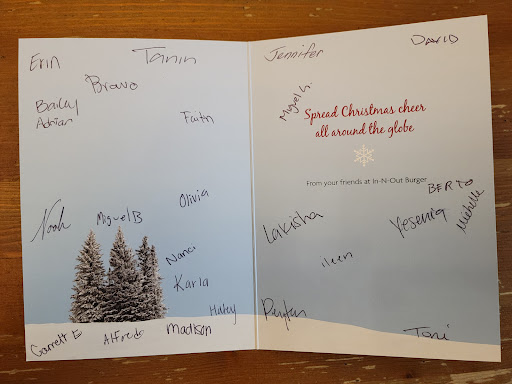 Erin
Tanin
Bravo
Bailey
Adrian
Faith
Olivia
Noah
Miguel B
Nanci
Karla
Haley
Garrett E
Alfredo
Madison
Jennifer
DAVID
Miguel G.
Spread Christmas cheer
all around the globe
From your friends at In-N-Out Burger
BERTO
Michelle
Yesenia
Lakisha
ileen
Peyton
Toni